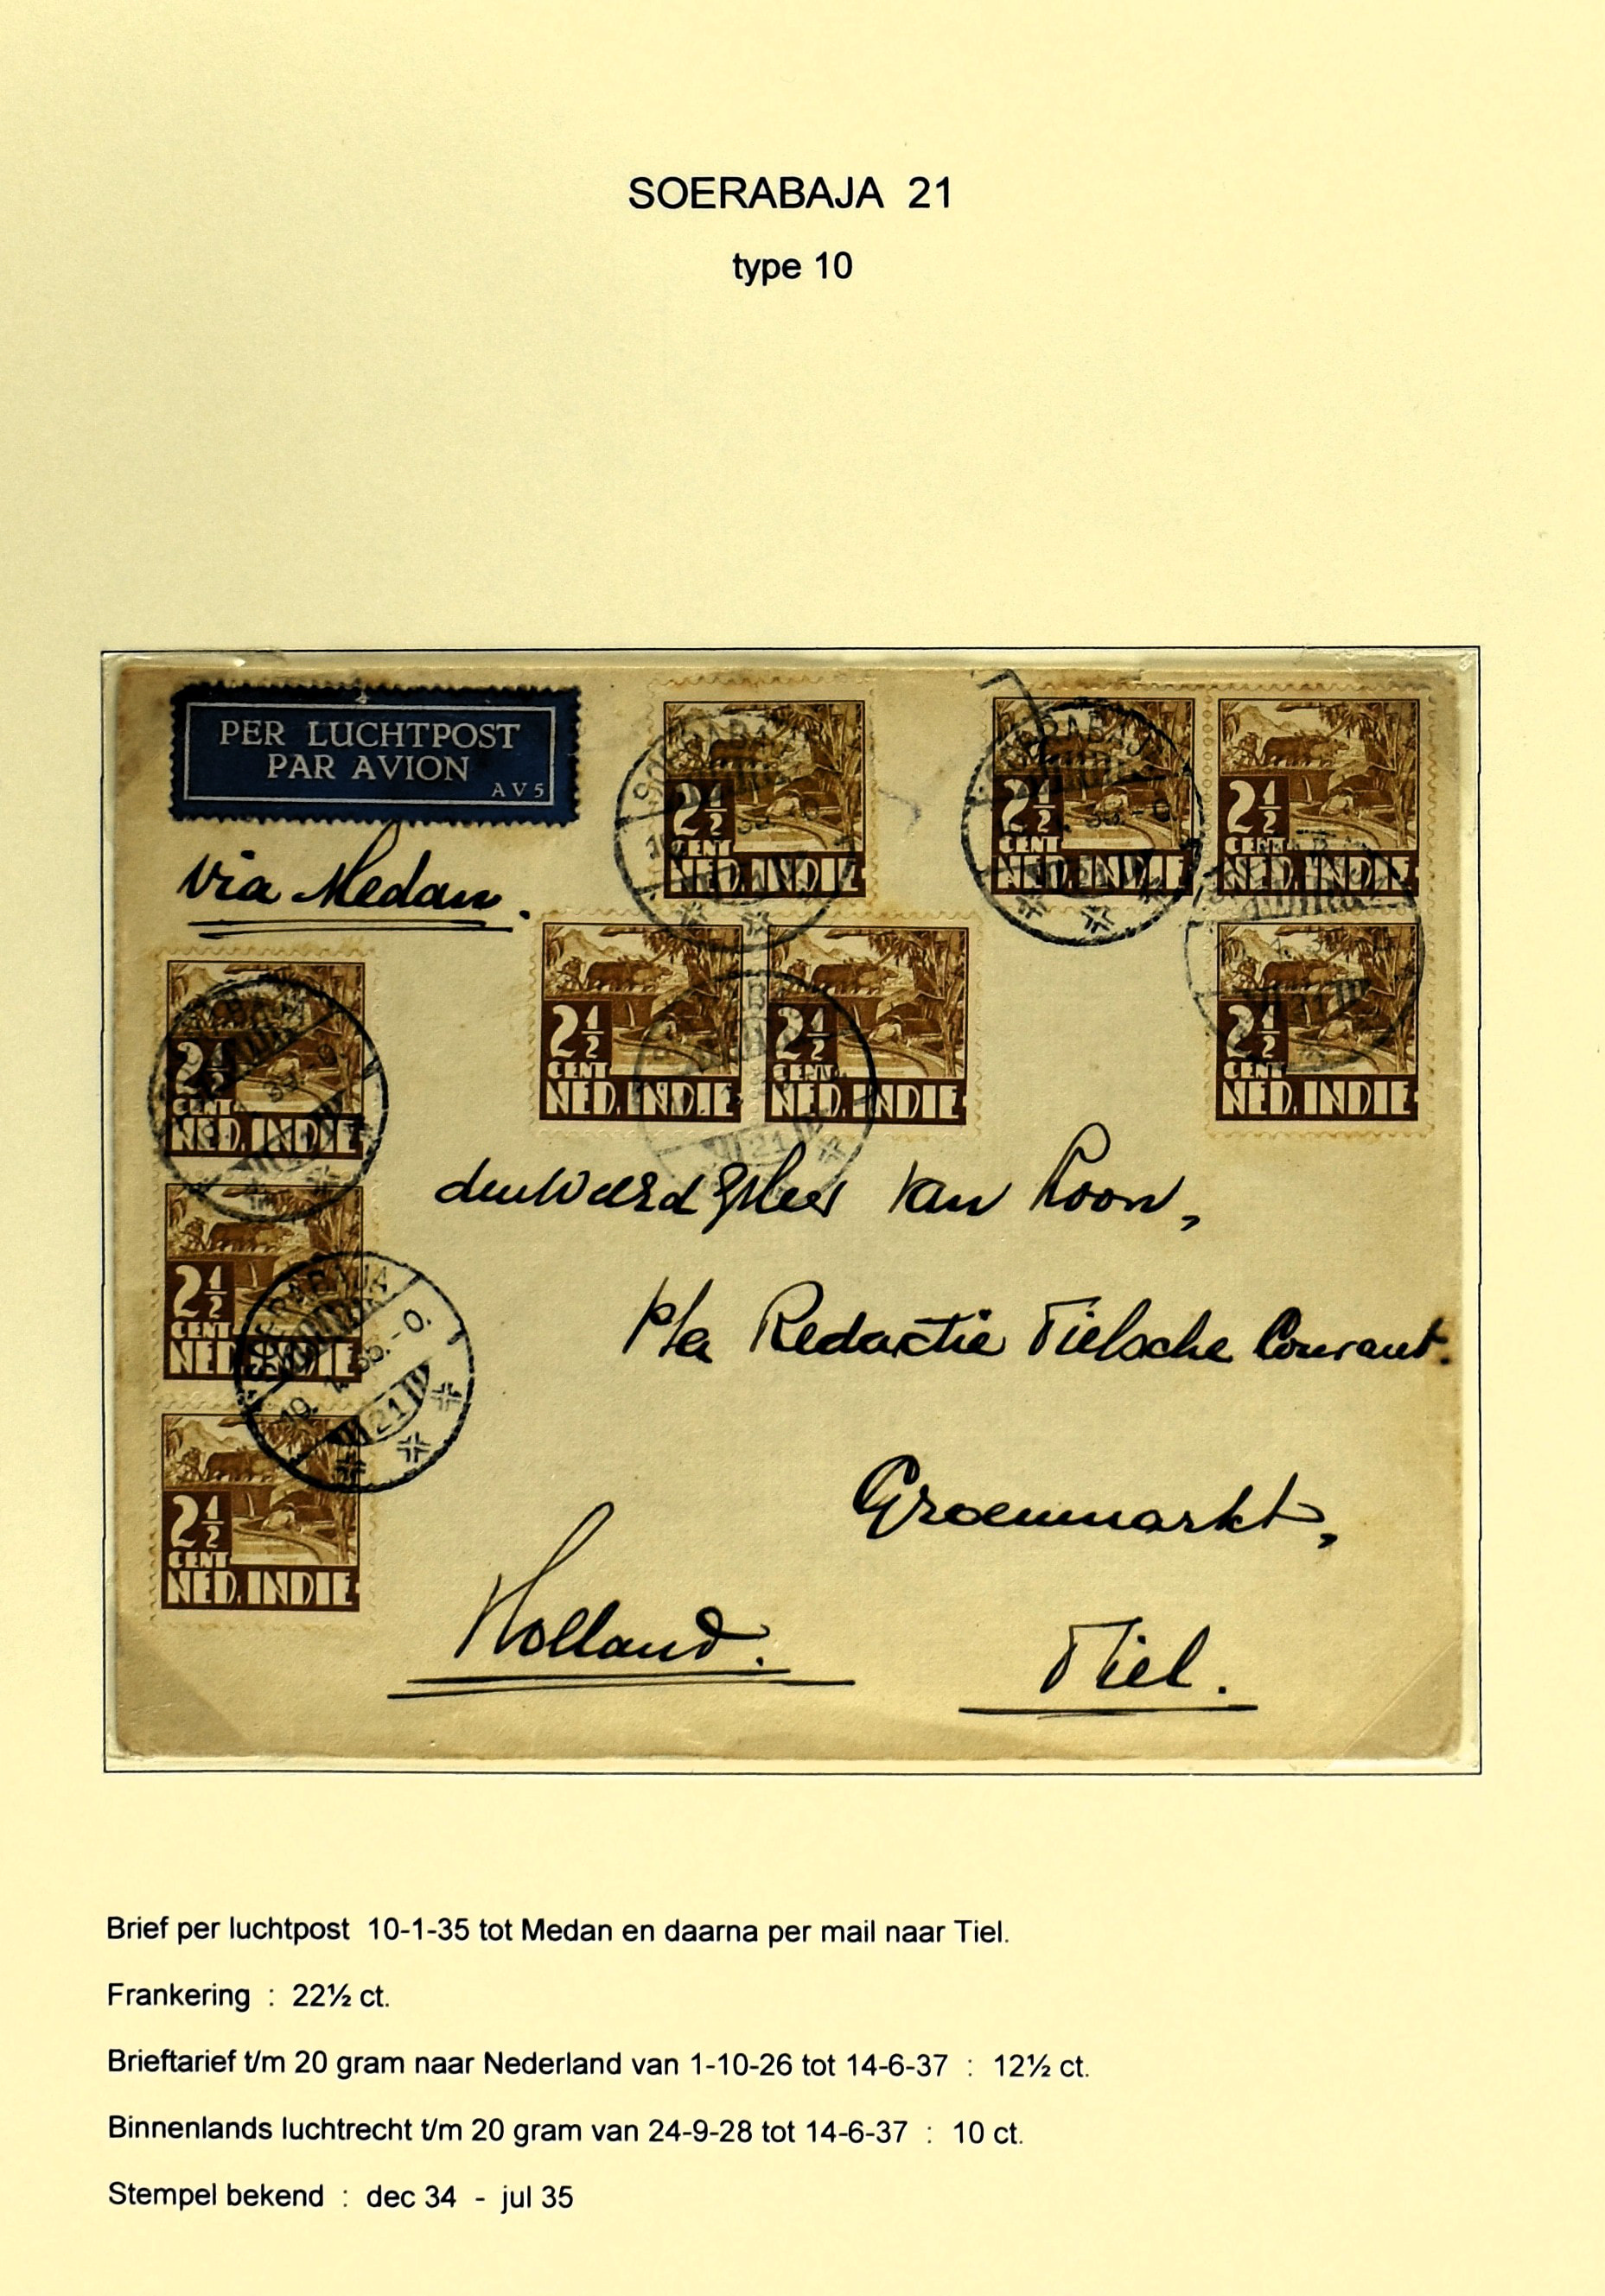 SOERABAJA 21
type 10
PER LUCHTPOST
PAR AVION
AV5
via Medan.
2½
CENT
NED. INDIE
2½
CENT
NED. INDIE
2½
CENT
NED. INDIE
2½
CENT
NED. INDIE
2½
CENT
NED. INDIE
2½
CENT
NED. INDIE
2½
CENT
NED. INDIE
2½
CENT
NED. INDIE
2½
CENT
NED. INDIE
SOERABAJA
10. 1. 35.-0.
21
den Weerd gHeer van Loon,
p/a Redactie Tielsche Courant.
Groenmarkt,
Holland.
Tiel.
Brief per luchtpost 10-1-35 tot Medan en daarna per mail naar Tiel.
Frankering : 22½ ct.
Brieftarief t/m 20 gram naar Nederland van 1-10-26 tot 14-6-37 : 12½ ct.
Binnenlands luchtrecht t/m 20 gram van 24-9-28 tot 14-6-37 : 10 ct.
Stempel bekend : dec 34 - jul 35